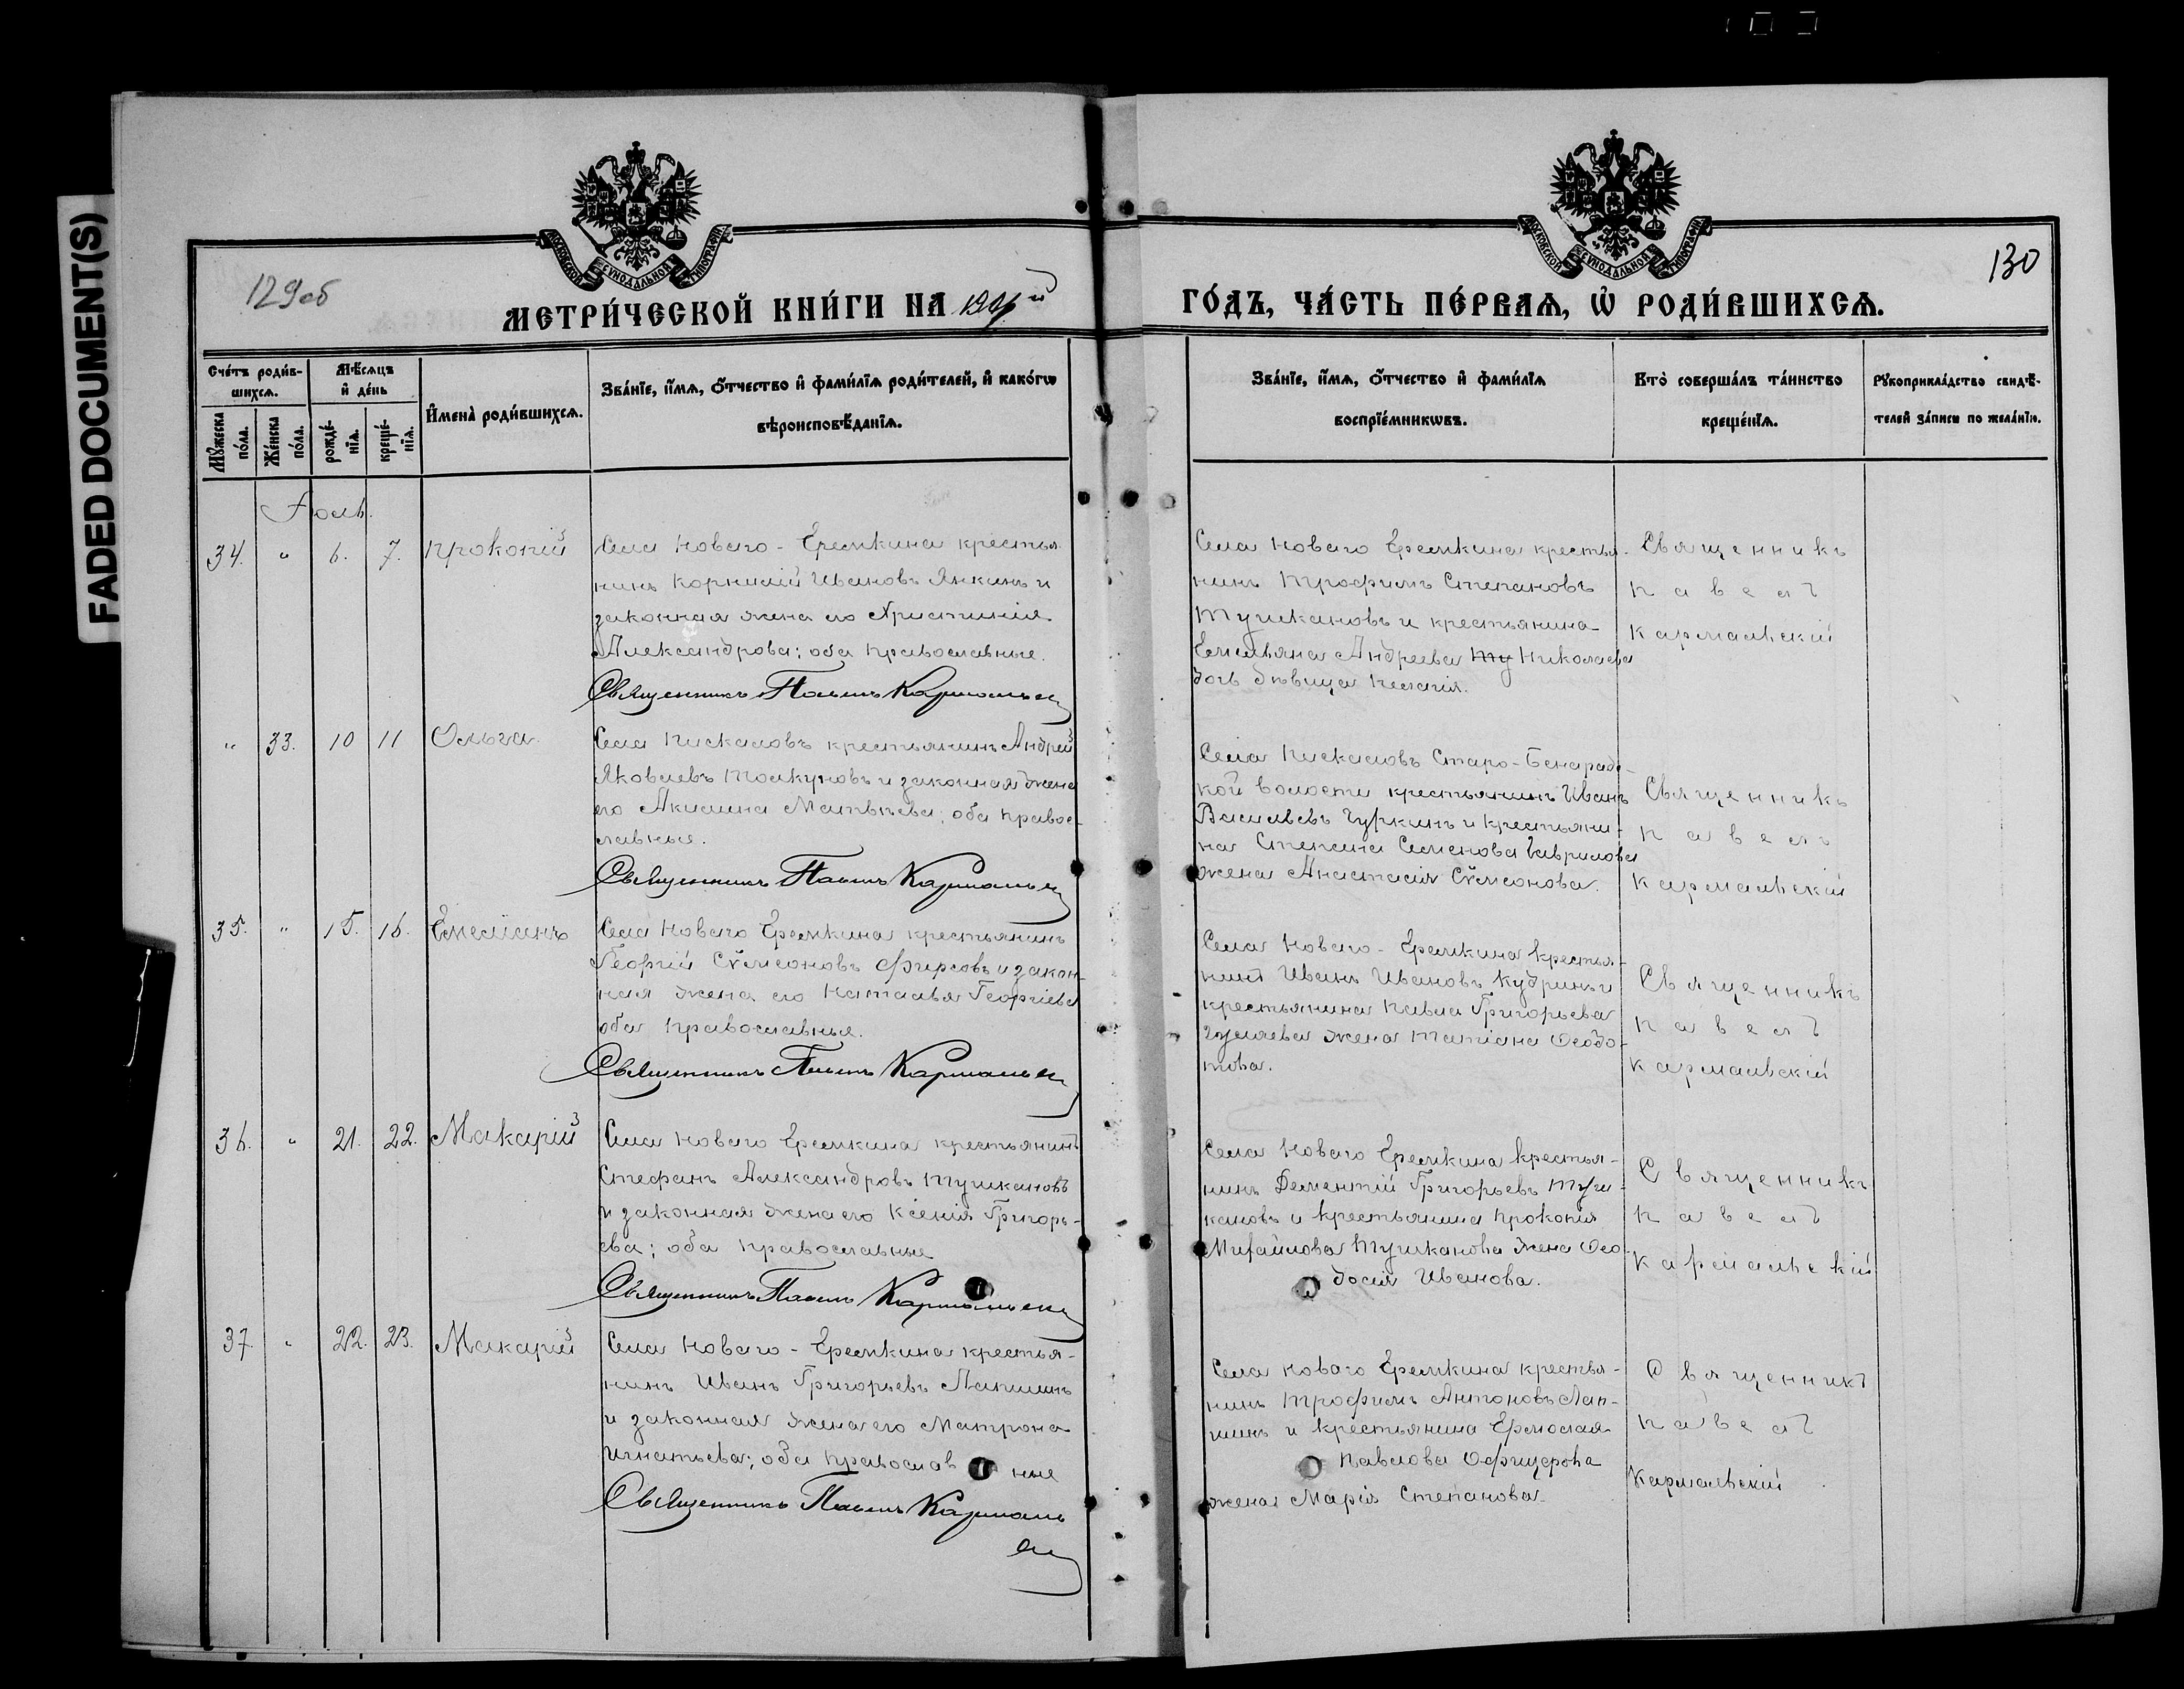 FADED DOCUMENT(S)
129об
130
МОСКОВСКОЙ СѴНОДАЛЬНОЙ ТИПОГРАФІИ
МОСКОВСКОЙ СѴНОДАЛЬНОЙ ТИПОГРАФІИ
МЕТРИ́ЧЕСКОЙ КНИ́ГИ НА
ГО́ДЪ, ЧА́СТЬ ПЕ́РВАѦ, Ѡ҆ РОДИ́ВШИХСѦ.
Сче́тъ роди́в-
шихсѧ.
Мꙋ́жеска по́ла.
Же́нска по́ла.
Мѣ́сѧцъ
и҆ де́нь
рожде́-
нїѧ.
креще́-
нїѧ.
И҆мена̀ роди́вшихсѧ.
Зва́нїе, и҆́мѧ, ѻ҆́тчество и҆ фами́лїѧ роди́телей, и҆ како́гѡ
вѣроисповѣ́данїѧ.
Зва́нїе, и҆́мѧ, ѻ҆́тчество и҆ фами́лїѧ
воспрїе́мникѡвъ.
Кто̀ соверша́лъ та́инство
креще́нїѧ.
Рꙋкоприкла́дство свидѣ́-
телей за́писи по жела́нїю.
Іюль.
34. " 6. 7. Прокопій
Села Новаго-Еремкина крестья-
нинъ Корнилій Ивановъ Янкинъ и
законная жена его Христинія
Александрова; оба православные.
Священникъ Павелъ Кармальск
Села Новаго Еремкина крестья-
нинъ Трофимъ Степановъ
Тушкановъ и крестьянина
Емельяна Андреева Ту Николаева
дочь дѣвица Пелагія.
Священникъ
Павелъ
Кармальскій
" 33. 10 11 Ольга
Села Пискаловъ крестьянинъ Андрей
Яковлевъ Толкуновъ и законная жена
его Акилина Матвѣева; оба правос-
лавные.
Священникъ Павелъ Кармальск
Села Пискаловъ Старо-Бенарадс-
кой волости крестьянинъ Иванъ
Васильевъ Гуркинъ и крестьяни-
на Степана Семенова Гаврилова
жена Анастасія Сѵмеонова.
Священникъ
Павелъ
Кармальскій
35. " 15. 16. Емеліанъ
Села Новаго Еремкина крестьянинъ
Георгій Сѵмеоновъ Фирсовъ и закон-
ная жена его Наталья Георгіева
оба православные.
Священникъ Павелъ Кармальск
Села Новаго-Еремкина крестья-
нинъ Иванъ Ивановъ Кудринъ и
крестьянина Павла Григорьева
жена Татіана Ѳеодо-
това.
Священникъ
Павелъ
Кармальскій
36. " 21. 22. Макарій
Села Новаго Еремкина крестьянинъ
Стефанъ Александровъ Тушкановъ
и законная жена его Ксенія Григорь-
ева; оба православные
Священникъ Павелъ Кармальск
Села Новаго Еремкина крестья-
нинъ Дементій Григорьевъ Туш-
кановъ и крестьянина Прокопія
Михайлова Тушканова жена Ѳео-
досія Иванова.
Священникъ
Павелъ
Кармальскій
37. " 22. 23. Макарій
Села Новаго-Еремкина крестья-
нинъ Иванъ Григорьевъ Лапшинъ
и законная жена его Матрона
Игнатьева; оба православ ные
Священникъ Павелъ Кармаль
ск
Села Новаго Еремкина крестья-
нинъ Трофимъ Антоновъ Лап-
шинъ и крестьянина Ермолая
Павлова Офицерова
жена Марія Степанова
Священникъ
Павелъ
Кармальскій